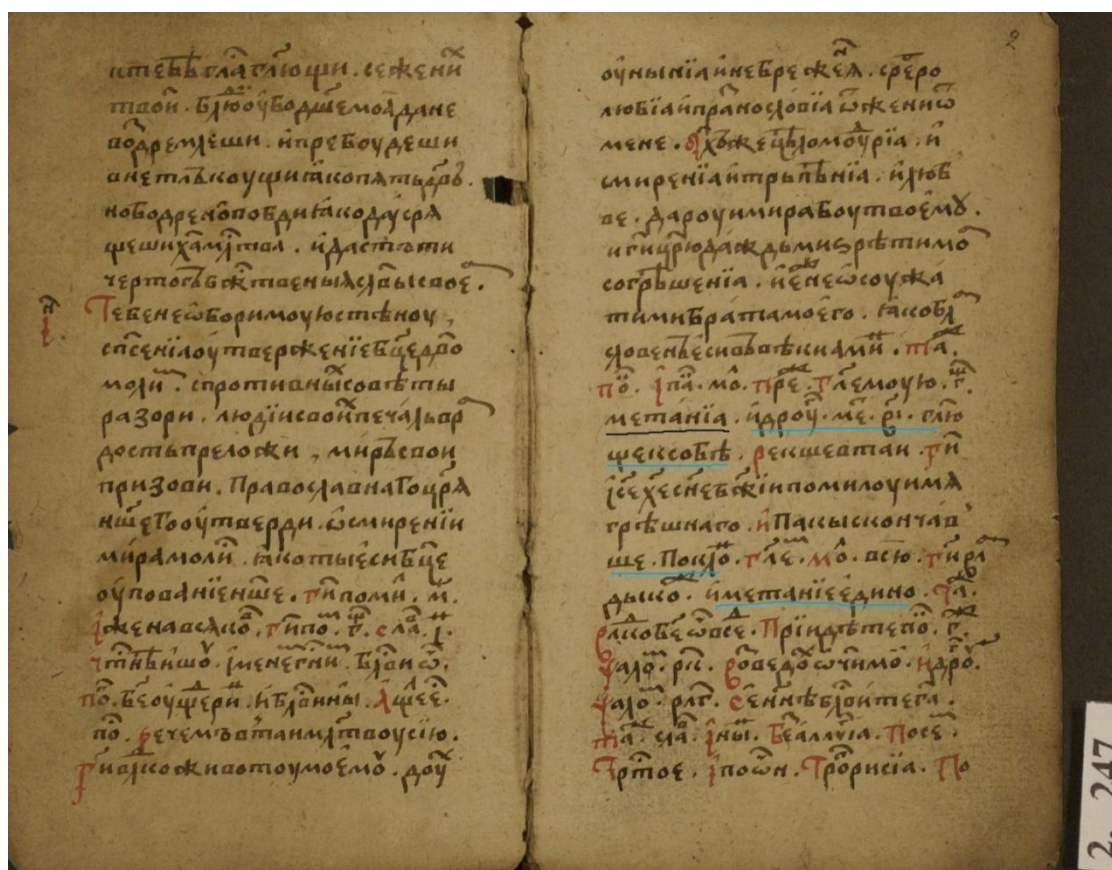 к тебѣ гл҃а гл҃ющи . се жених
твои . блюди ѹбо дш҃е моя да не
въздремлеши . и пребоудеши
внѣ тлъкоущи ꙗко пять дв҃ъ .
но бодрено поведи ꙗко да ѹсря
щеши х҃а мл҃ства . и дастъ ти
чертогъ бж҃ственыя славы своея .
Тебе неѡборимоую стѣноу ,
сп҃сенїа ѹтвержение бц҃е дв҃о
молим . спротивных совѣты
разори . людїи своих печаль в ра
дость преложи , миръ свои
призови . Православнаго цр҃я
нш҃его ѹтверди . ѡ смирении
мира моли . ꙗко ты еси бц҃е
ѹпование нш҃е . гп҃и поми . м҃ .
иже на всяко . ги по . г҃ . сла . і .
чтнѣишѹ . именем гн҃им . блв҃и ѡ .
по .
по . речемъ в таи мл҃твоу сїю .
Ги вл҃ко животоу моемѹ . доух
ѹныния и небрежения . сребро
любїа и празнословїа ѡжени ѿ
мене . дх҃ъ же цѣломоудрїа . и
смиренїа и трьпѣнїа . и люб
ве . дароуи ми рабоу твоемѹ .
и ги цр҃ю даждь ми зрѣти моя
согрѣшенїа . и еже не ѡсоужа
ти ми брата моего . ꙗко бл҃го
словенъ еси въ вѣкы аминь . та .
по . і па . мо . преж . гл҃емоую . г҃ .
метанїа . и дроу . ме . в҃і . гл҃ю
ще к собѣ . рекше в таи . ги
іс҃е х҃е сн҃е бж҃іи помилоуи мя
грѣшнаго . и Пакы скончав
ше . Покло . гл҃е . мо . всю . ги вл҃а
дыко . и метание едино . Та .
Прїидѣте по . г҃ .
ѱало . рк҃ . Возведох очи мо . и дрѹ .
ѱало . рл҃г . Се нн҃ѣ блв҃ите г҃а .
та . сла . і ны . алли҃лїа . Посе .
Трс҃тое . і по ѡ҃ч н . Тропо . По